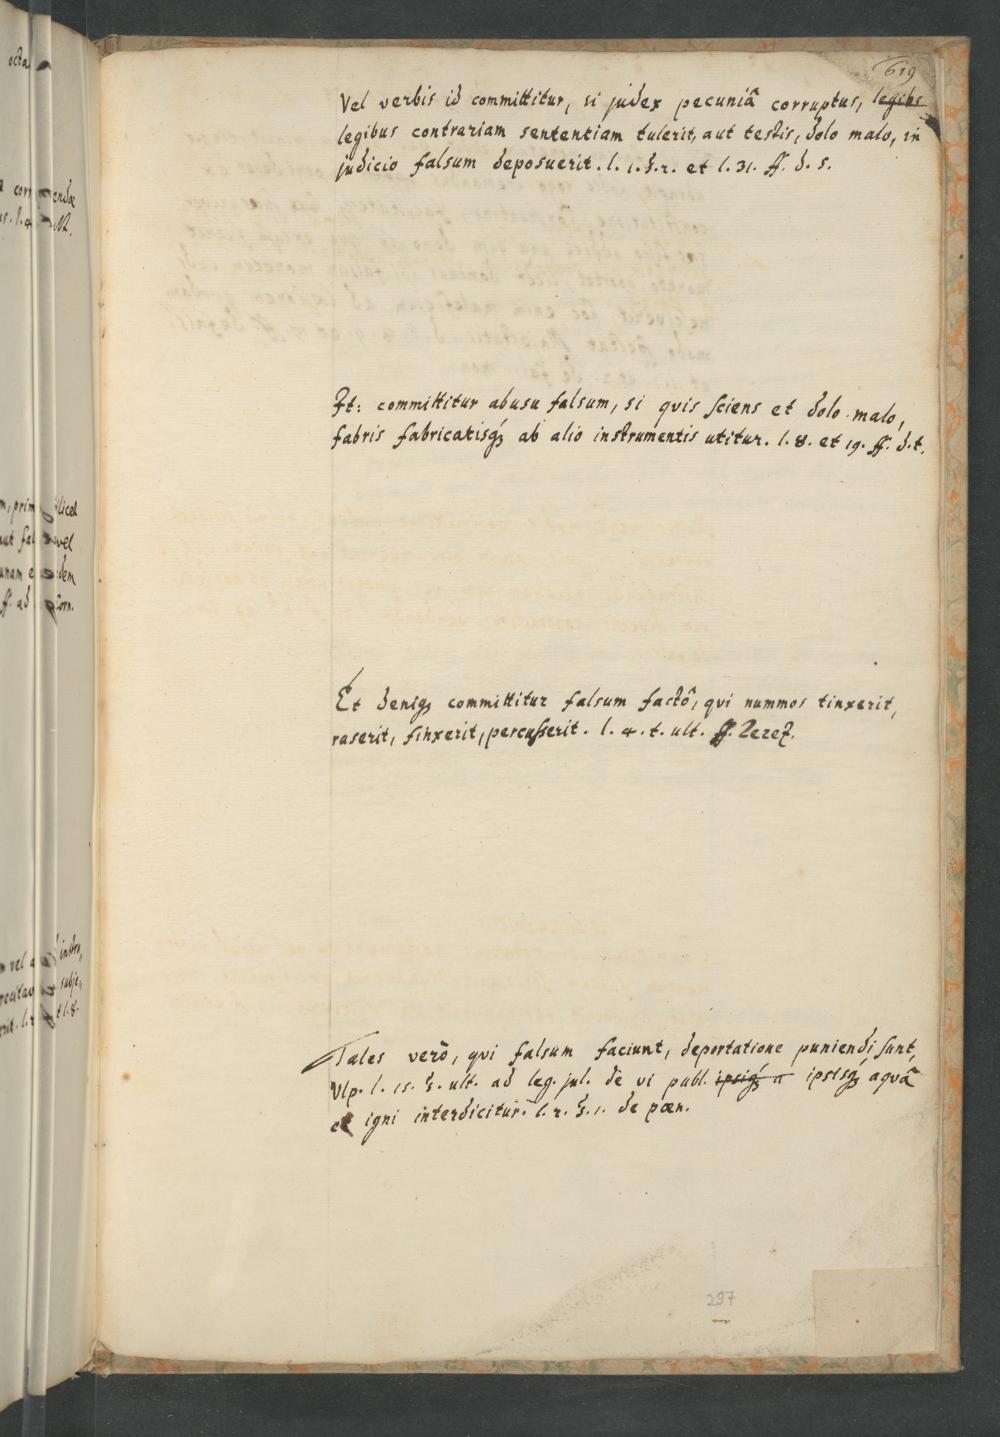 619
Vel verbis id committitur, si judex pecuniâ corruptus, legibs
legibus contrariam sententiam tulerit, aut testis, dolo malo, in
judicio falsum deposuerit. l. 1. §. 2. et l. 31. ff. d. s.
It: committitur abusu falsum, si qvis sciens et dolo malo,
fabris fabricatisq́3 ab alio instrumentis utitur. l. 8. et 19. ff. d. t.
Et deniq3 committitur falsum factô, qvi nummos tinxerit,
raserit, finxerit, percusserit. l. 4. t. ult. ff.
Tales verò, qvi falsum faciunt, deportatione puniendi sunt,
Vlp. l. 15. §. ult. ad leg. jul. de vi publ. ipsiq́3 a ipsisq́3 aqvâ
et igni interdicitur. l. 2. §. 1. de pœn.
297